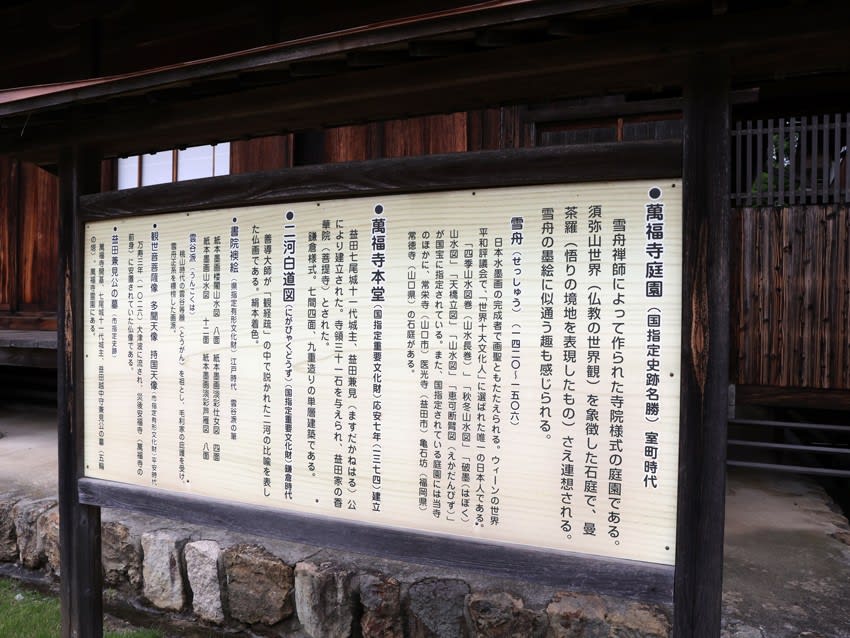 ●萬福寺庭園（国指定史跡名勝）室町時代
雪舟禅師によって作られた寺院様式の庭園である。
須弥山世界（仏教の世界観）を象徴した石庭で、曼
茶羅（悟りの境地を表現したもの）さえ連想される。
雪舟の墨絵に似通う趣も感じられる。
雪舟（せっしゅう）（一四二〇～一五〇六）
日本水墨画の完成者で画聖ともたたえられる。ウィーンの世界
平和評議会で、「世界十大文化人」に選ばれた唯一の日本人である。
「四季山水図巻（山水長巻）」「秋冬山水図」「破墨（はぼく）
山水図」「天橋立図」「山水図」「恵可断臂図（えかだんぴず）」
が国宝に指定されている。また、国指定されている庭園には当寺
のほかに、常栄寺（山口市）医光寺（益田市）亀石坊（福岡県）
常徳寺（山口県）の石庭がある。
●萬福寺本堂（国指定重要文化財）応安七年（一三七四）建立
益田七尾城十一代城主、益田兼見（ますだかねはる）公
により建立された。寺領三十一石を与えられ、益田家の香
華院（菩提寺）とされた。
鎌倉様式。七間四面、九重造りの単層建築である。
●二河白道図（にがびゃくどうず）（国指定重要文化財）鎌倉時代
善導大師が「観経疏」の中で説かれた二河の比喩を表し
た仏画である。絹本着色。
●書院襖絵（県指定有形文化財）江戸時代 雲谷派の筆
紙本墨画楼閣山水図 八面 紙本墨画淡彩仕女図 四面
紙本墨画山水図 十二面 紙本墨画淡彩芦雁図 八面
雲谷派（うんこくは）
桃山時代の雲谷等顔（とうがん）を祖とし、毛利家の庇護を受け、
雪舟正系を標榜した画派。
●観世音菩薩像 多聞天像 持国天像（市指定有形文化財）平安時代
万寿三年（一〇二六）大津波に流され、災後安福寺（萬福寺の
前身）に安置されていた仏像である。
●益田兼見公の墓（市指定史跡）
萬福寺開基、七尾城十一代城主、益田越中守兼見公の墓（五輪
の塔）。萬福寺霊園にある。